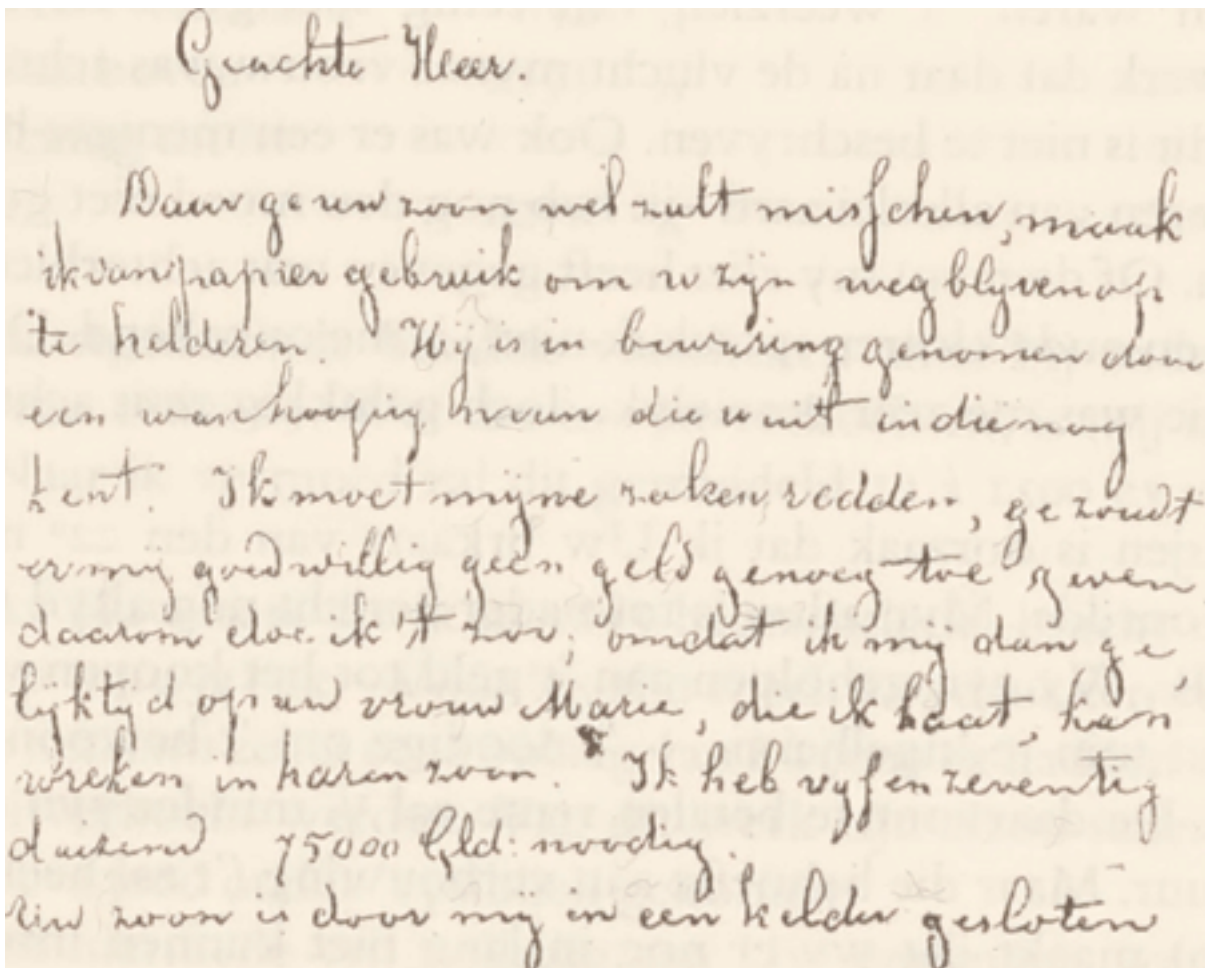 Geachte Heer.
Daar ge uw zoon wel zult misschen, maak
ik van papier gebruik om u zijn wegblyven op
te helderen. Hy is in bewaring genomen door
een wanhoopig man die u uit indie nog
kent. Ik moet myne zaken redden, ge zoudt
er my goedwillig geen geld genoeg toe geven
daarom doe ik 't zoo, omdat ik my dan ge
lijktijd op uw vrouw Marie, die ik haat, kan
wreken in haren zoon. Ik heb vyfenzeventig
duizend 75000 Gld: noodig.
Uw zoon is door mij in een kelder gesloten